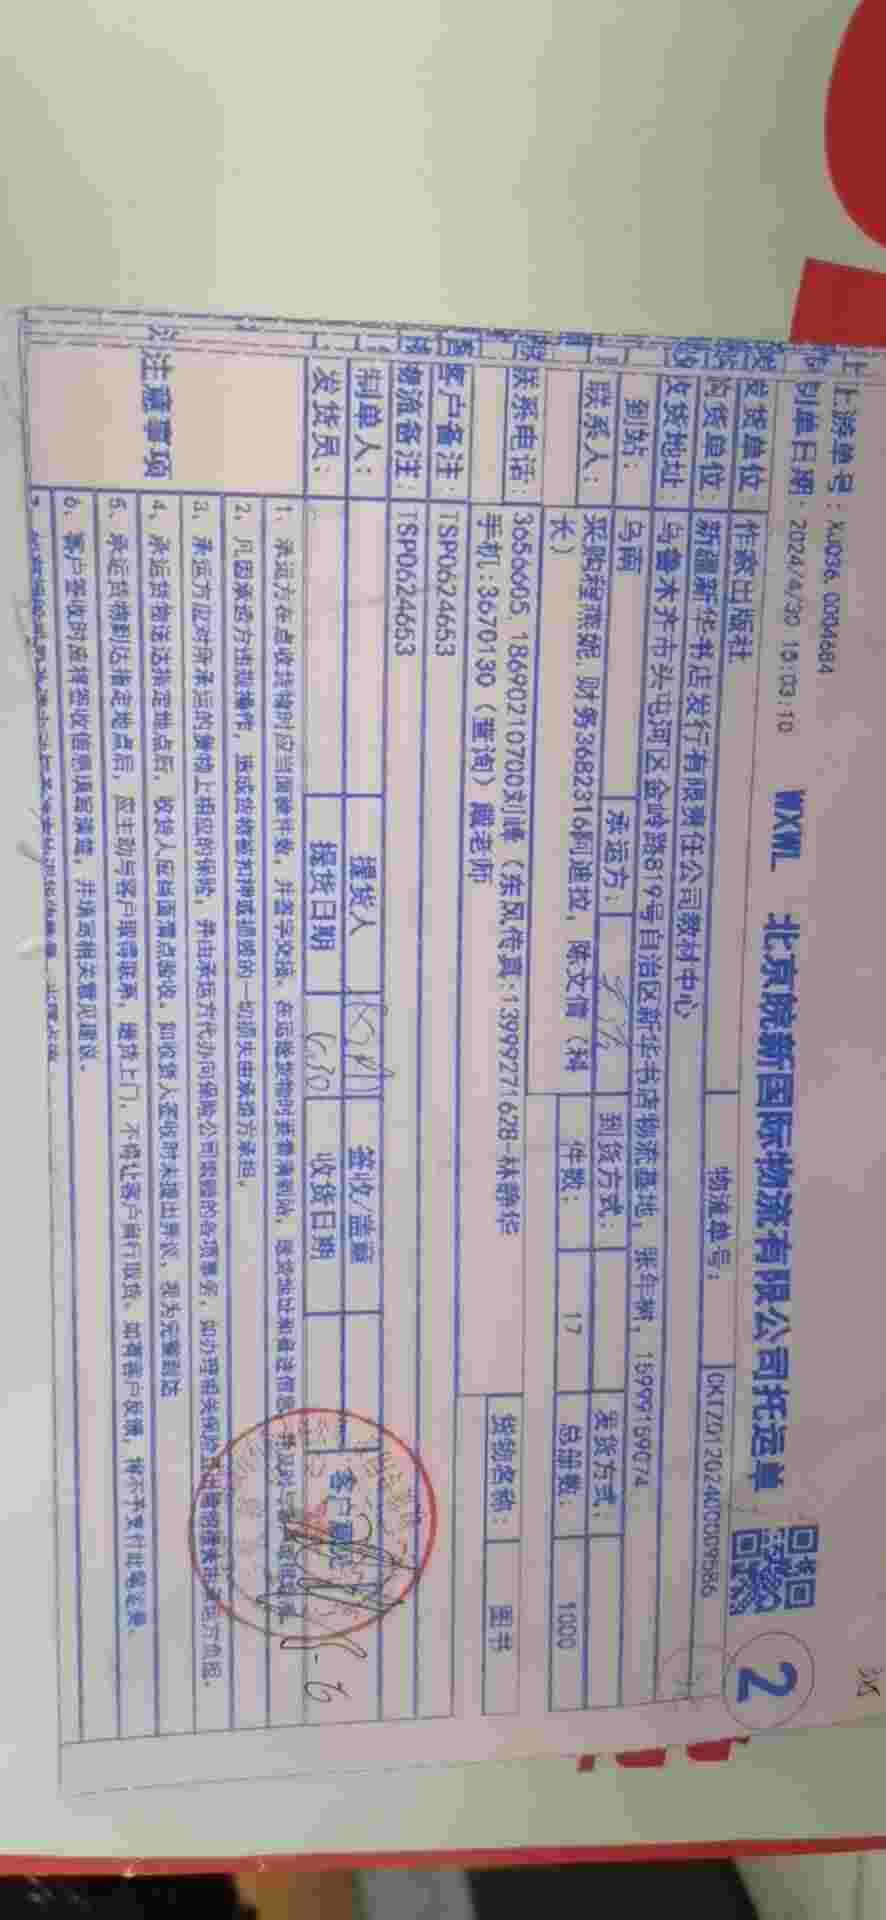 上游单号：XJ036, 0004684
制单日期：2024/4/30 15:03:10
WXWL 北京皖新国际物流有限公司托运单
2
物流单号：
CKTZ0120240009586
发货单位：作家出版社
收货单位：新疆新华书店发行有限责任公司教材中心
收货地址：乌鲁木齐市头屯河区金岭路819号自治区新华书店物流基地，张年树，15999159074
到站：乌南
承运方：
到货方式：
发货方式：
联系人：采购程燕妮，财务3682316阿迪拉，陈文信（科长）
件数：17
总册数：1000
联系电话：3656605，18690210700刘峰（东风传真:13999271628-林静华
手机:3670130（查询）戴老师
货物名称：图书
客户备注：TSP0624653
物流备注：TSP0624653
制单人：
提货人
签收/盖章
客户
发货员：
提货日期
收货日期
注意事项
1、承运方在点收货物时应当面清件数，并签字交接。在运送货物时要看清到站、送货地址和备注信息
2、凡因承运方违规操作，造成货物被扣押或损毁的一切损失由承运方承担。
3、承运方应对所承运的货物上相应的保险，并由承运方代办向保险公司索赔的各项事务，如办理相关保险
4、承运货物送达指定地点后，收货人应当面清点验收，如收货人签收时未提出异议，视为完整到达
5、承运货物到达指定地点后，应主动与客户取得联系，送货上门，不得让客户自行取货。如有客户反馈，将不予支付此笔运费。
6、客户签收时应将签收信息填写清楚，并填写相关意见建议。